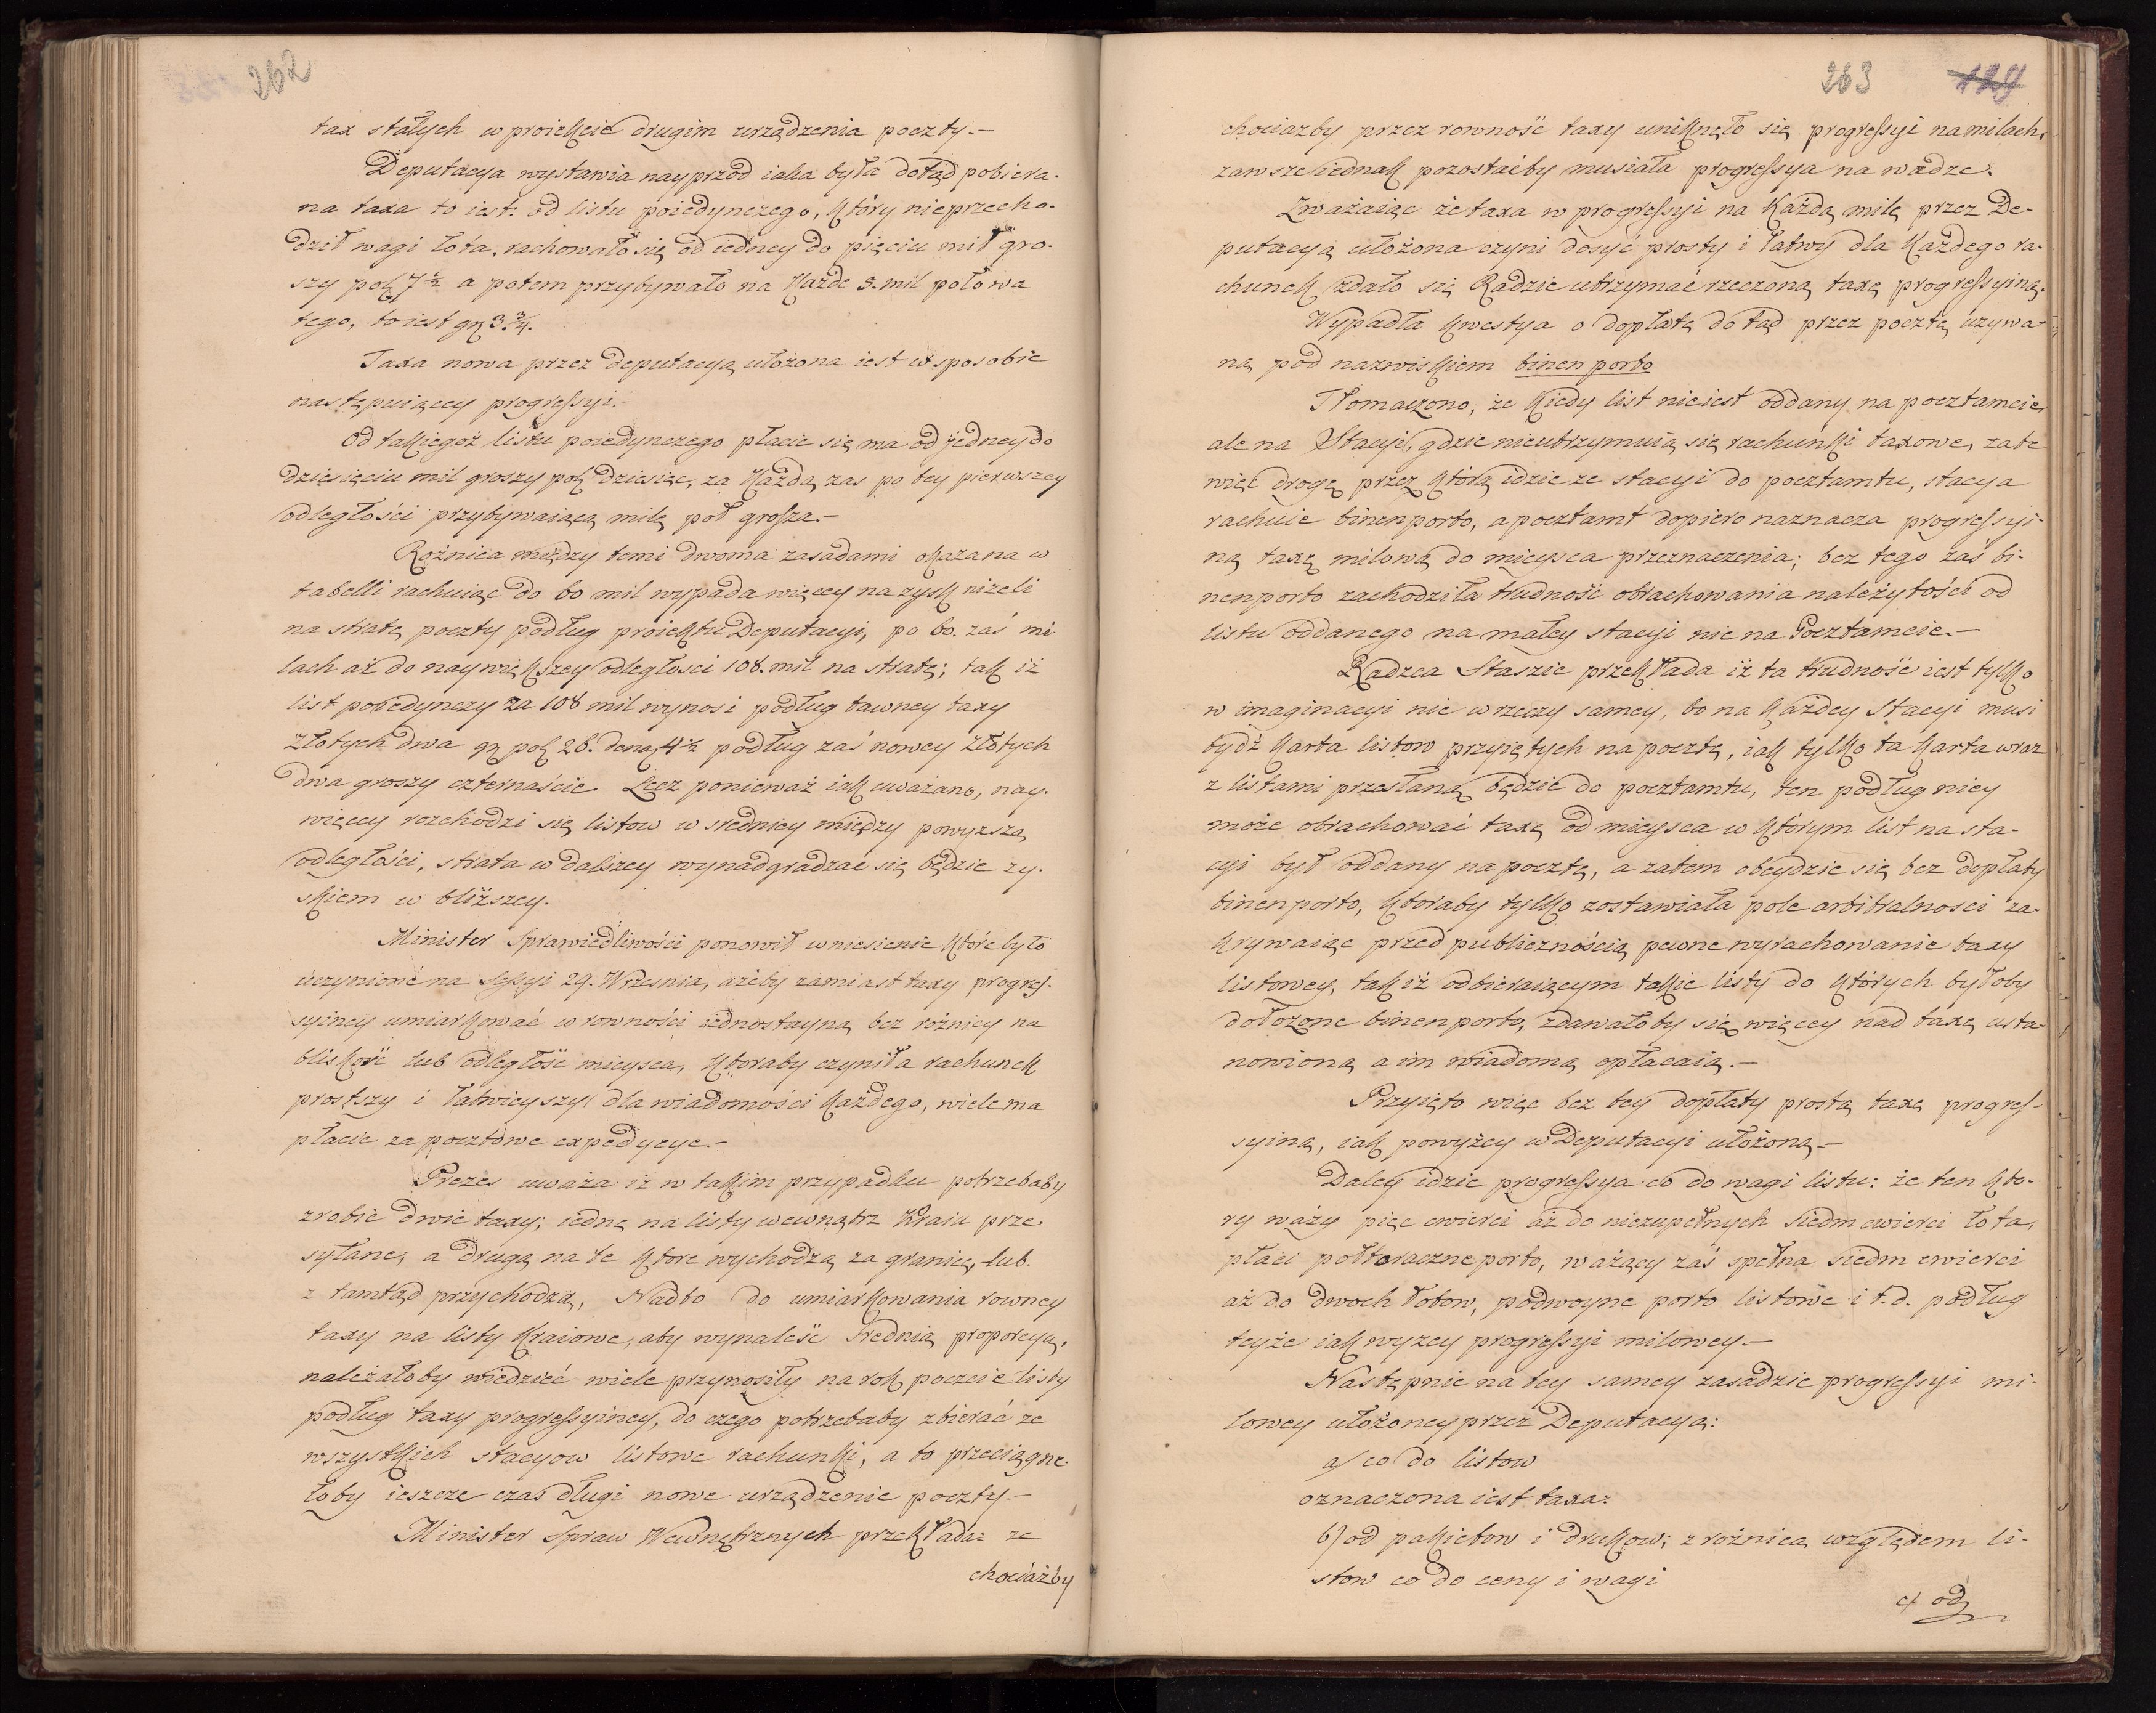 262
tax stałych w proiekcie drugim urządzenia poczty.—
Deputacya wystawia nayprzód iaka była dotąd pobiera-
na taxa to iest: od listu poiedynczego, który nieprzecho-
dził wagi łóta, rachowało się od iedney do pięciu mil gro-
szy pol. 7½ a potem przybywało na każde 5. mil połowa
tego, to iest gr 3¾.
Taxa nowa przez deputacyą ułożona iest w sposobie
następuiącey progressyi.—
Od takiegoż listu poiedynczego płacić się ma od jedney do
dziesięciu mil groszy pol. dziesięc, za każdą zas po tey pierwszey
odległości przybywaiącą milę pół grosza.—
Rożnica między temi dwoma zasadami okazana w
tabelli rachuiąc do 60 mil wypada więcey na zysk niżeli
na stratę poczty podług proiektu Deputacyi, po 60. zaś mi
lach aż do naywiększey odległosci 108. mil na stratę; tak iż
list poiedynczy za 108 mil wynosi podług dawney taxy
złotych dwa gr pol. 26. dena. 4½ podług zaś nowey złotych
dwa groszy czternaście. Lecz ponieważ iak uważano, nay-
więcey rozchodzi się listow w sredniey między powyzszą
odległości, strata w dalszey wynadgradzać się będzie zy-
skiem w bliższey.
Minister Sprawiedliwości ponowił wniesienie które było
uczynione na Sessyi 29. Wrzesnia, ażeby zamiast taxy progres-
syiney umiarkować w rowności iednostayną bez różnicy na
bliskość lub odległość mieysca, ktoraby czyniła rachunek
prostszy i łatwieyszy dla wiadomości każdego, wiele ma
płacić za pocztowe expedycye.—
Prezes uważa iż w takim przypadku potrzebaby
zrobić dwie taxy; iedną na listy wewnątrz kraiu prze-
syłane, a drugą na te ktore wychodzą za granicę, lub
z tamtąd przychodzą, Nadto do umiarkowania rowney
taxy na listy kraiowe, aby wynaleść srednią proporcyą,
należałoby wiedzieć wiele przynosiły na rok poczcie listy
podług taxy progressyiney, do czego potrzebaby zbierać ze
wszystkich stacyow listowe rachunki, a to przeciągnę-
łoby ieszcze czas długi nowe urządzenie poczty.—
Minister Spraw Wewnętrznych przekłada: ze
chociażby
263 129
chociazby przez rowność taxy uniknęło się progressyi na milach,
zawsze iednak pozostaćby musiała progressya na wadze.
Zważaiąc że taxa w progressyi na każdą milę przez De-
putacyą ułożona czyni dosyć prosty i łatwy dla każdego ra-
chunek zdało się Radzie utrzymać rzeczoną taxę progressyiną.
Wypadła kwestya o dopłatę dotąd przez pocztę uzywa-
ną pod nazwiskiem binen porto
Tłomaczono, że kiedy list nieiest oddany na pocztamcie,
ale na Stacyi, gdzie nieutrzymuią się rachunki taxowe, za tę
więc drogę przez którą idzie ze stacyi do pocztamtu, stacya
rachuie binenporto, a pocztamt dopiero naznacza progressyi-
ną taxę milową do mieysca przeznaczenia; bez tego zaś bi-
nenporto zachodziła trudność obrachowania należytości od
listu oddanego na małey stacyi nie na Pocztamcie.—
Radzca Staszic przekłada iż ta trudność iest tylko
w imaginacyi nie w rzeczy samey, bo na każdey Stacyi musi
bydź karta listow przyiętych na pocztę, iak tylko ta karta wraz
z listami przesłaną będzie do pocztamtu, ten podług niey
może obrachować taxę od mieysca w którym list na sta-
cyi był oddany na pocztę, a zatem obeydzie się bez dopłaty
binenporto, ktoraby tylko zostawiała pole arbitralnosci za-
krywaiąc przed publicznością pewne wyrachowanie taxy
listowey, tak iż odbieraiącym takie listy do których byłoby
dołożone binenporto, zdawałoby się więcey nad taxę usta-
nowioną a im wiadomą opłacaią.—
Przyięto więc bez tey dopłaty prostą taxę progres-
syiną, iak powyżey w Deputacyi ułożoną.—
Daley idzie progressya co do wagi listu: że ten kto-
ry waży pięc cwierci aż do niezupełnych siedm cwierci łóta,
płaci połtoraczne porto, ważący zaś spełna siedm cwierci
aż do dwoch łotow, podwoyne porto listowe i t.d. podług
teyże iak wyzey progressyi milowey.—
Następnie na tey samey zasadzie progressyi mi-
lowey ułożoney przez Deputacyą:
a/ co do listow
oznaczona iest taxa:
b/ od pakietow i drukow; z rożnicą względem li-
stow co do ceny i wagi
c/ od